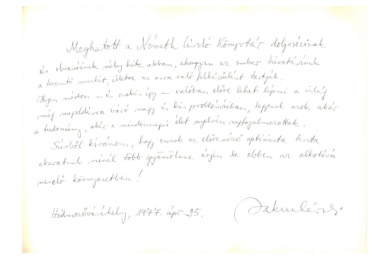 Meghatott a Németh László Könyvtár dolgozóinak
és olvasóinak mély hite abban, ahogyan az ember hivatásának
a teremtő munkát, illetve az arra való felkészülést tartják.
Ilyen módon – és csakis így – valóban előre lehet lépni a világ
még megoldásra váró nagy és kis problémáiban, legyenek azok akár
a tudomány, akár a mindennapi élet nyelvén megfogalmazottak.
Szívből kívánom, hogy ennek az előremutató optimista tiszta
akaratnak minél több gyümölcse érjen be ebben az alkotóvá
nevelő környezetben!
Hódmezővásárhely, 1977. ápr. 25.